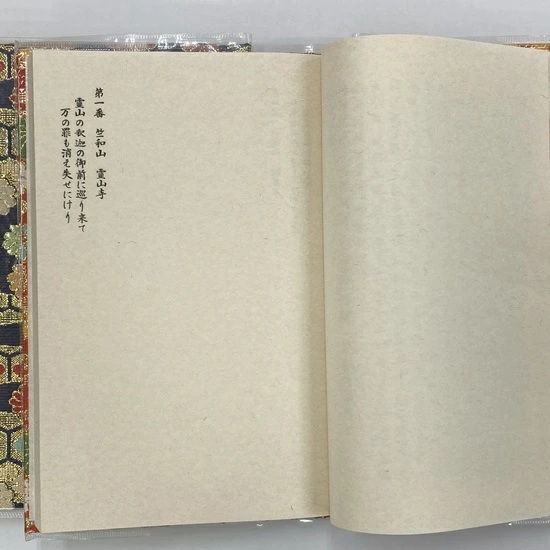 第一番 竺和山 霊山寺
霊山の釈迦の御前に巡り来て
万の罪も消え失せにけり